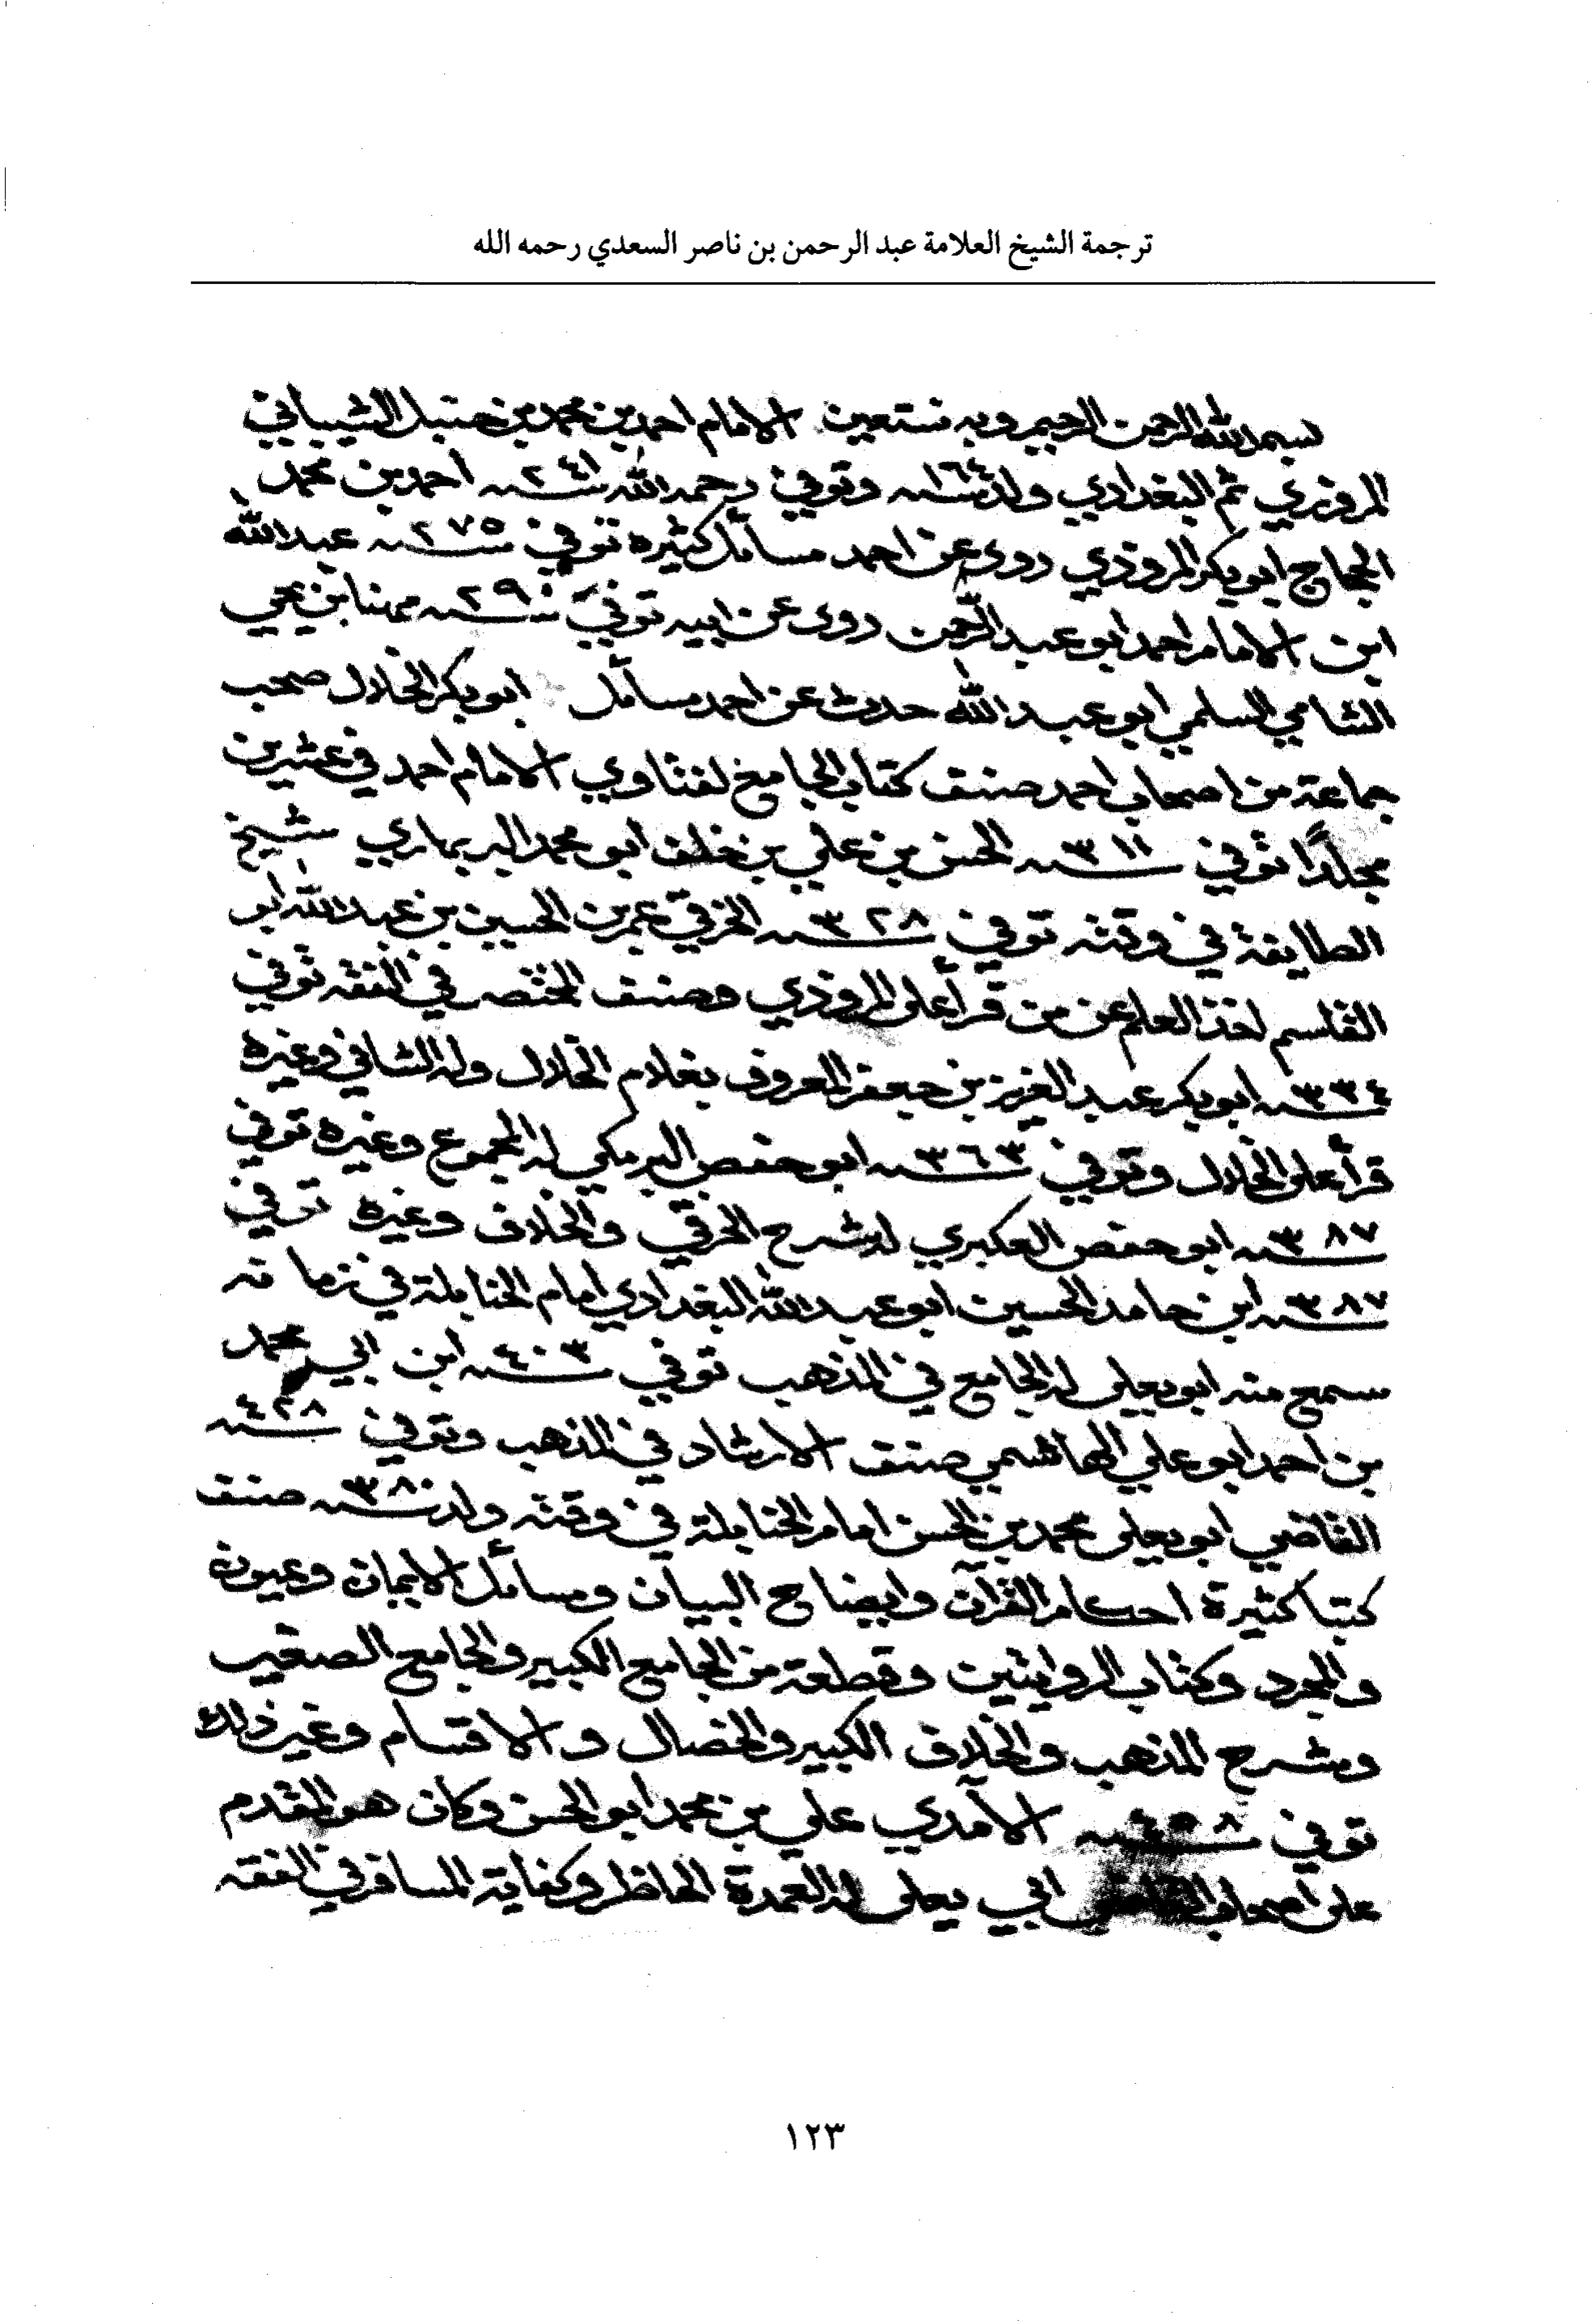 ترجمة الشيخ العلامة عبد الرحمن بن ناصر السعدي رحمه الله
بسم الله الرحمن الرحيم وبه نستعين الامام احمد بن محمد بن حنبل الشيباني
المروزي ثم البغدادي ولد سنة ١٦٤ وتوفي رحمه الله سنة ٢٤١ احمد بن محمد
الحجاج ابو بكر المروذي روى عن احمد مسائل كثيرة توفي سنة ٢٧٥ عبد الله
ابن الامام احمد ابو عبد الرحمن روى عن ابيه توفي سنة ٢٩٠ مهنا بن يحيى
الشامي السلمي ابو عبد الله حدث عن احمد مسائل ابو بكر الخلال صحب
جماعة من اصحاب احمد صنف كتاب الجامع لفتاوي الامام احمد في عشرين
مجلدًا توفي سنة ٣١١ الحسن بن علي بن خلف ابو محمد البربهاري شيخ
الطايفة في وقته توفي سنة ٣٢٨ الخرقي عمر بن الحسين بن عبد الله ابو
القاسم اخذ العلم عن من قرأ على المروذي وصنف المختصر في الفقه توفي
سنة ٣٣٤ ابو بكر عبد العزيز بن جعفر المعروف بغلام الخلال وله الشافي وغيره
قرأ على الخلال وتوفي سنة ٣٦٣ ابو حفص البرمكي له المجموع وغيره توفي
سنة ٣٨٧ ابو حفص العكبري له شرح الخرقي والخلاف وغيره توفي
سنة ٣٨٧ ابن حامد الحسين ابو عبد الله البغدادي امام الحنابلة في زمانه
سمع منه ابو يعلى له الجامع في المذهب توفي سنة ٤٠٣ ابن ابي محمد
بن احمد ابو علي الهاشمي صنف الارشاد في المذهب وتوفي سنة ٤٢٨
القاضي ابو يعلى محمد بن الحسن امام الحنابلة في وقته ولد سنة ٣٨٠ صنف
كتبا كثيرة احكام القرآن وايضاح البيان ومسائل الايمان وعيون
والمجرد وكتاب الروايتين وقطعة من الجامع الكبير والجامع الصغير
وشرح المذهب والخلاف الكبير والخصال والاقسام وغير ذلك
توفي سنة ٤٥٨ الآمدي علي بن محمد ابو الحسن وكان هو المقدم
على اصحاب القاضي ابي يعلى له العمدة الحاظر وكفاية المسافر في الفقه
١٢٣